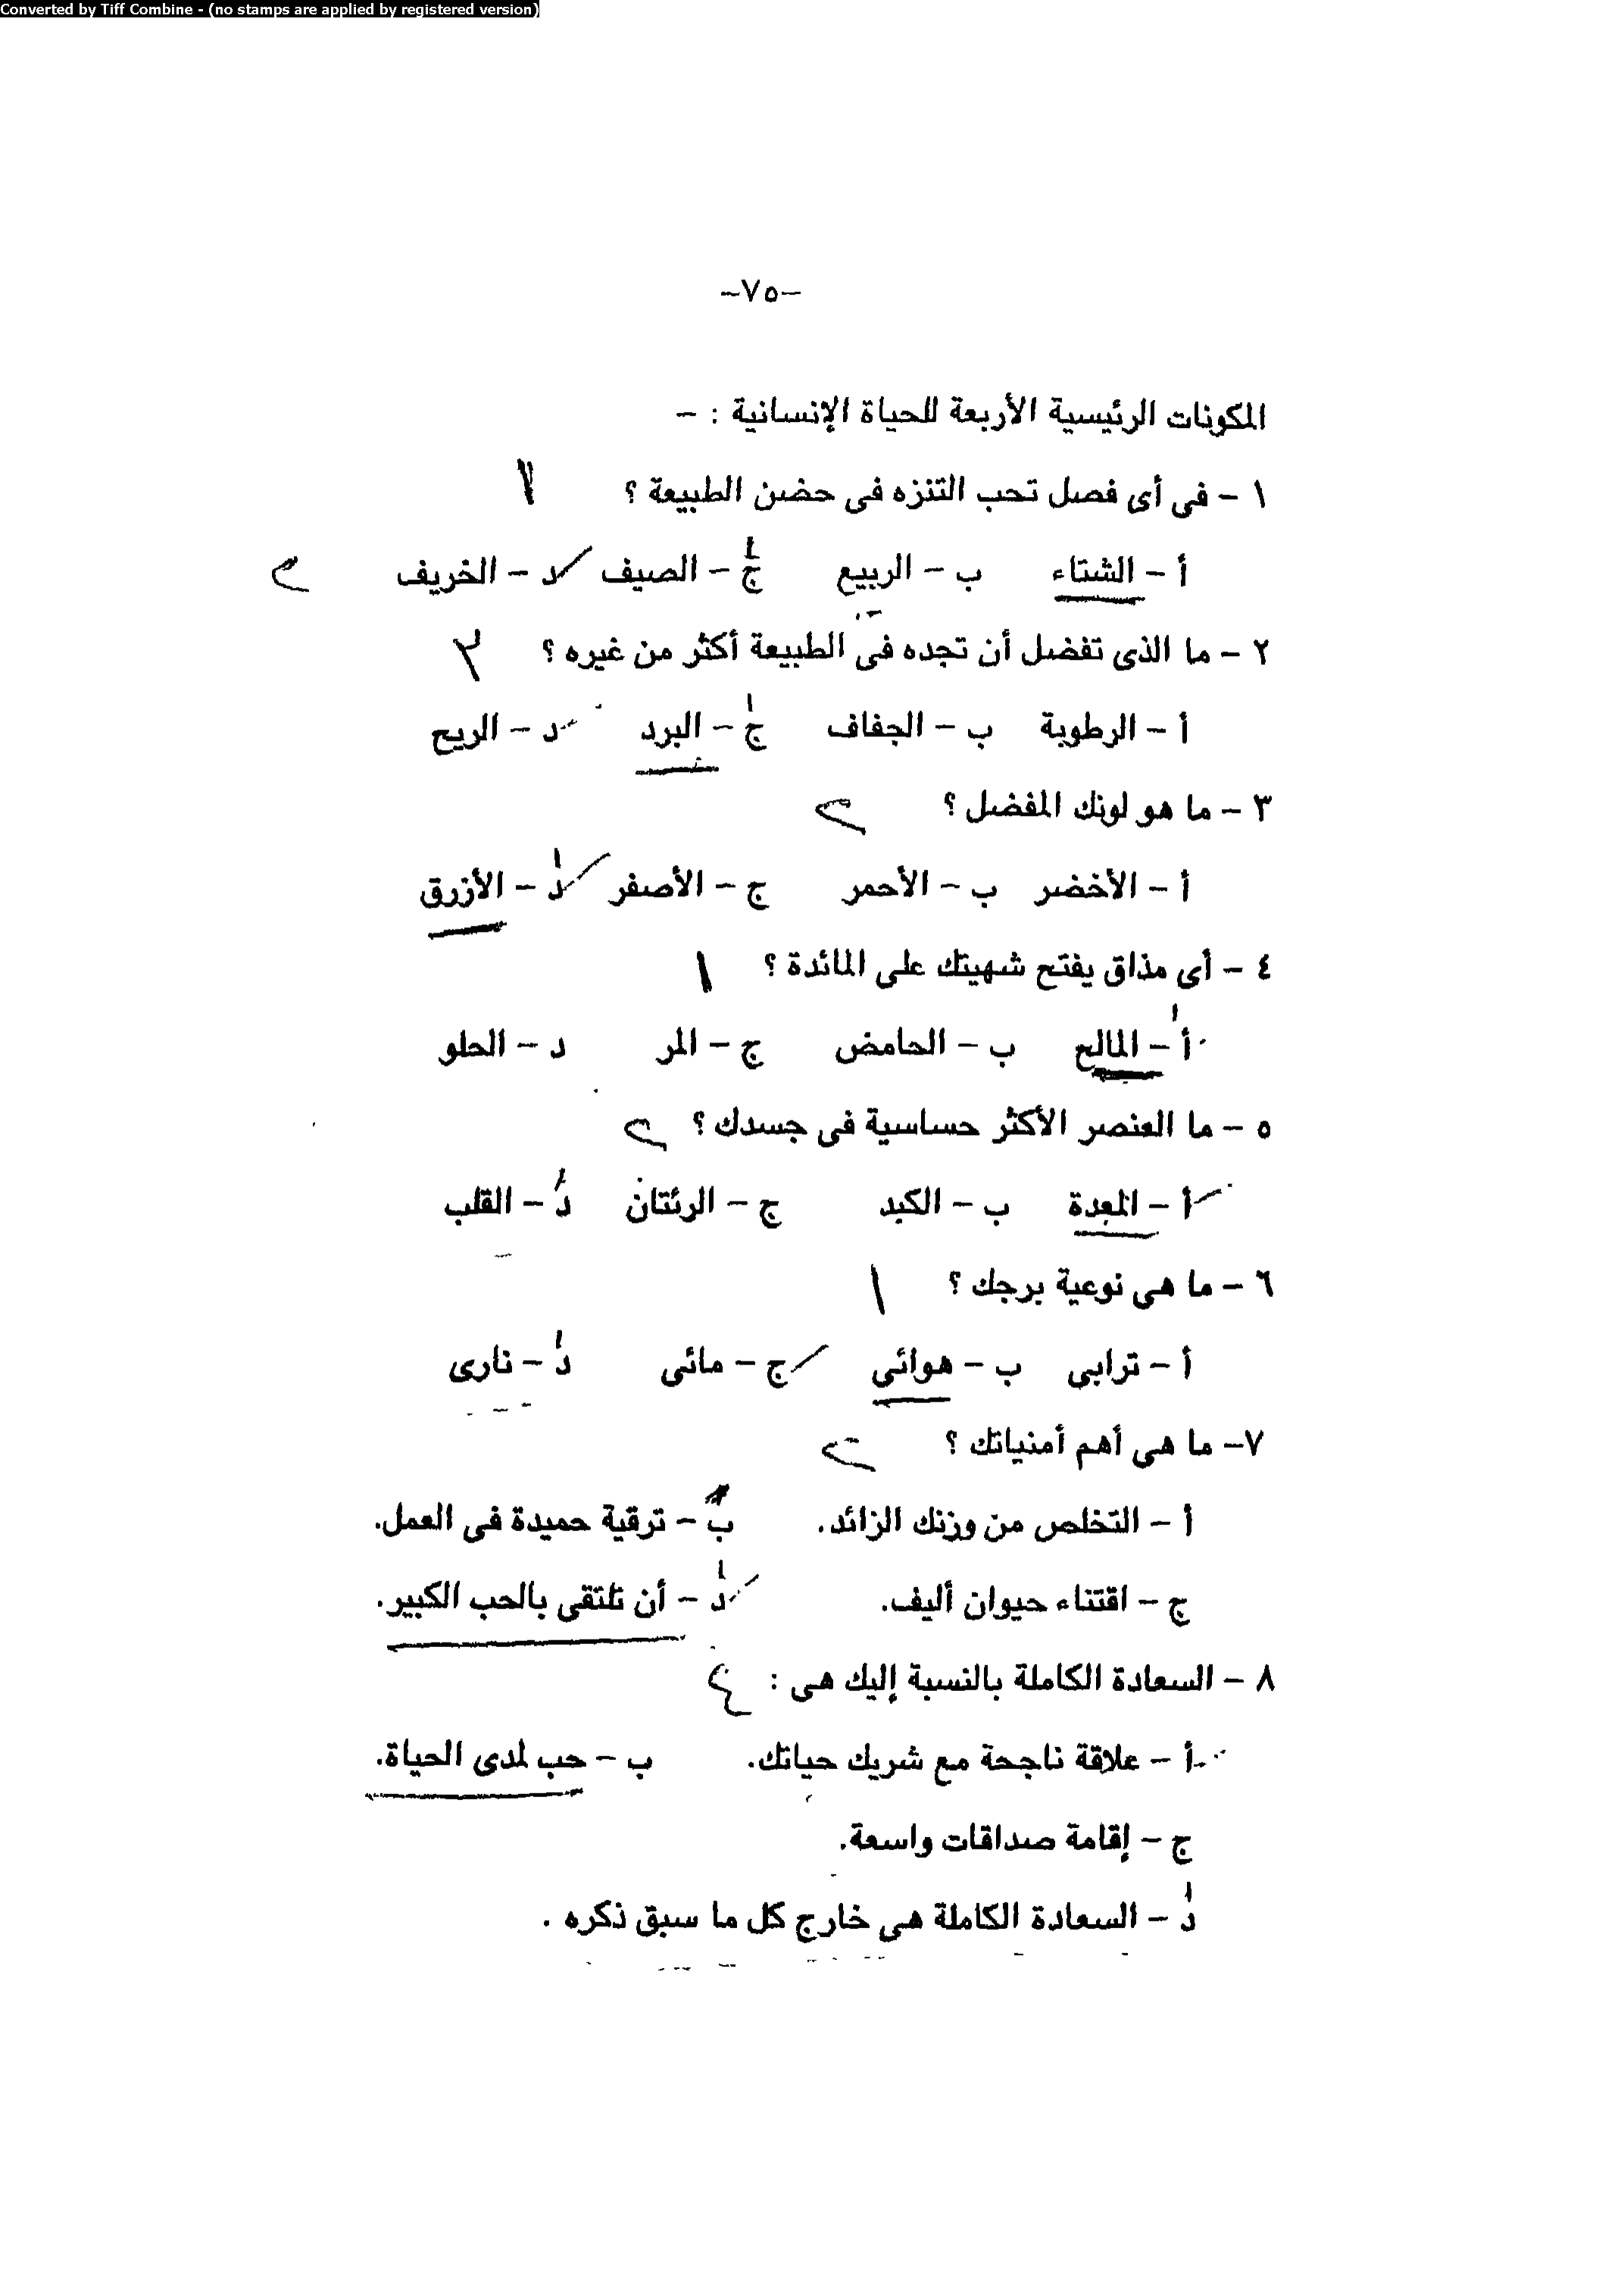 Converted by Tiff Combine - (no stamps are applied by registered version)
-٧٥-
المكونات الرئيسية الأربعة للحياة الإنسانية : -
١ - فى أى فصل تحب التنزه فى حضن الطبيعة ؟
أ - الشتاء ب - الربيع ج - الصيف د - الخريف
٢ - ما الذى تفضل أن تجده فى الطبيعة أكثر من غيره ؟
أ - الرطوبة ب - الجفاف ج - البرد د - الريح
٣ - ما هو لونك المفضل ؟
أ - الأخضر ب - الأحمر ج - الأصفر د - الأزرق
٤ - أى مذاق يفتح شهيتك على المائدة ؟
أ - المالح ب - الحامض ج - المر د - الحلو
٥ - ما العنصر الأكثر حساسية فى جسدك ؟
أ - المعدة ب - الكبد ج - الرئتان د - القلب
٦ - ما هى نوعية برجك ؟
أ - ترابى ب - هوائى ج - مائى د - نارى
٧- ما هى أهم أمنياتك ؟
أ - التخلص من وزنك الزائد. ب - ترقية حميدة فى العمل.
ج - اقتناء حيوان أليف. د - أن تلتقى بالحب الكبير.
٨ - السعادة الكاملة بالنسبة إليك هى :
أ - علاقة ناجحة مع شريك حياتك. ب - حب لمدى الحياة.
ج - إقامة صداقات واسعة.
د - السعادة الكاملة هى خارج كل ما سبق ذكره .